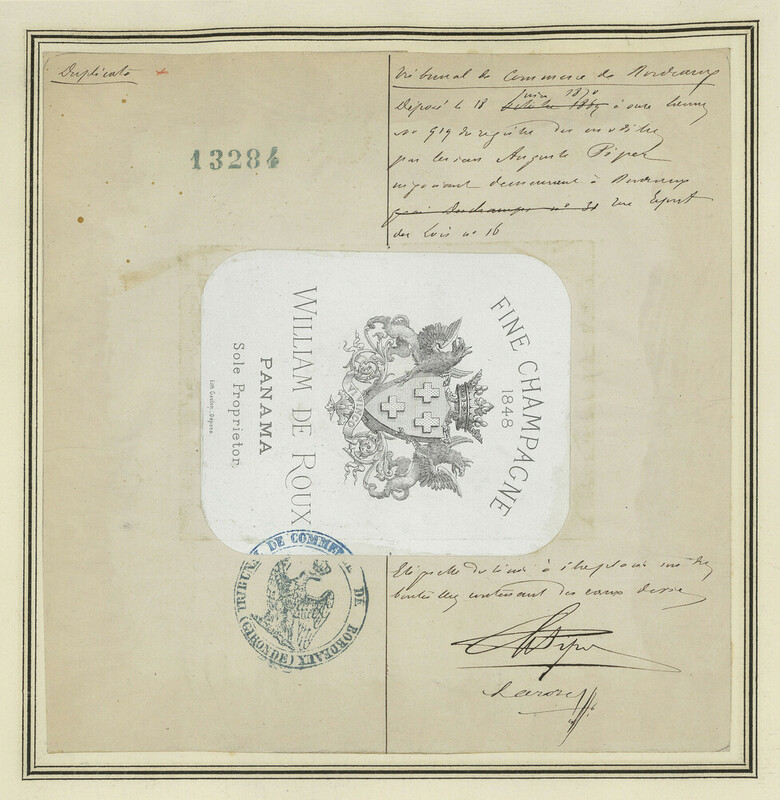 Duplicata
13284
Tribunal de Commerce de Bordeaux
Juin 1870
Déposé le 18 octobre 1869 à onze heures
no 919 du registre des modèles
par le sieur Auguste Péper
négociant demeurant à Bordeaux
quai Deschamps no 31 rue Esprit
des Lois no 16
FINE CHAMPAGNE
1848
VINCO
WILLIAM DE ROUX
PANAMA
Sole Proprietor.
TRIBUNAL DE COMMERCE DE BORDEAUX
(GIRONDE)
Etiquette destinée à être placée sur des
bouteilles contenant des eaux de vie